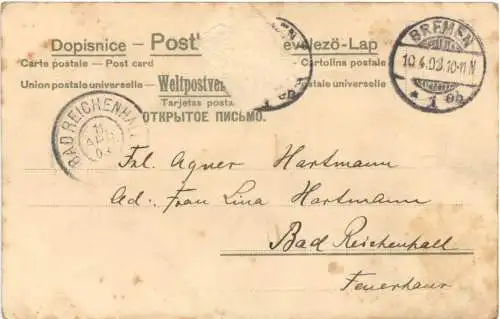 Dopisnice — Post evelező-Lap
Carte postale — Post card Cartolina postale
Union postale universelle — Weltpostver postale universelle
Tarjetas posta
ОТКРЫТОЕ ПИСЬМО.
BREMEN
10.4.03.10-11 N
* 1
BAD REICHENHA
11
03
Frl. Agnes Hartmann
Ad: Frau Lina Hartmann
Bad Reichenhall
Feuerhaus